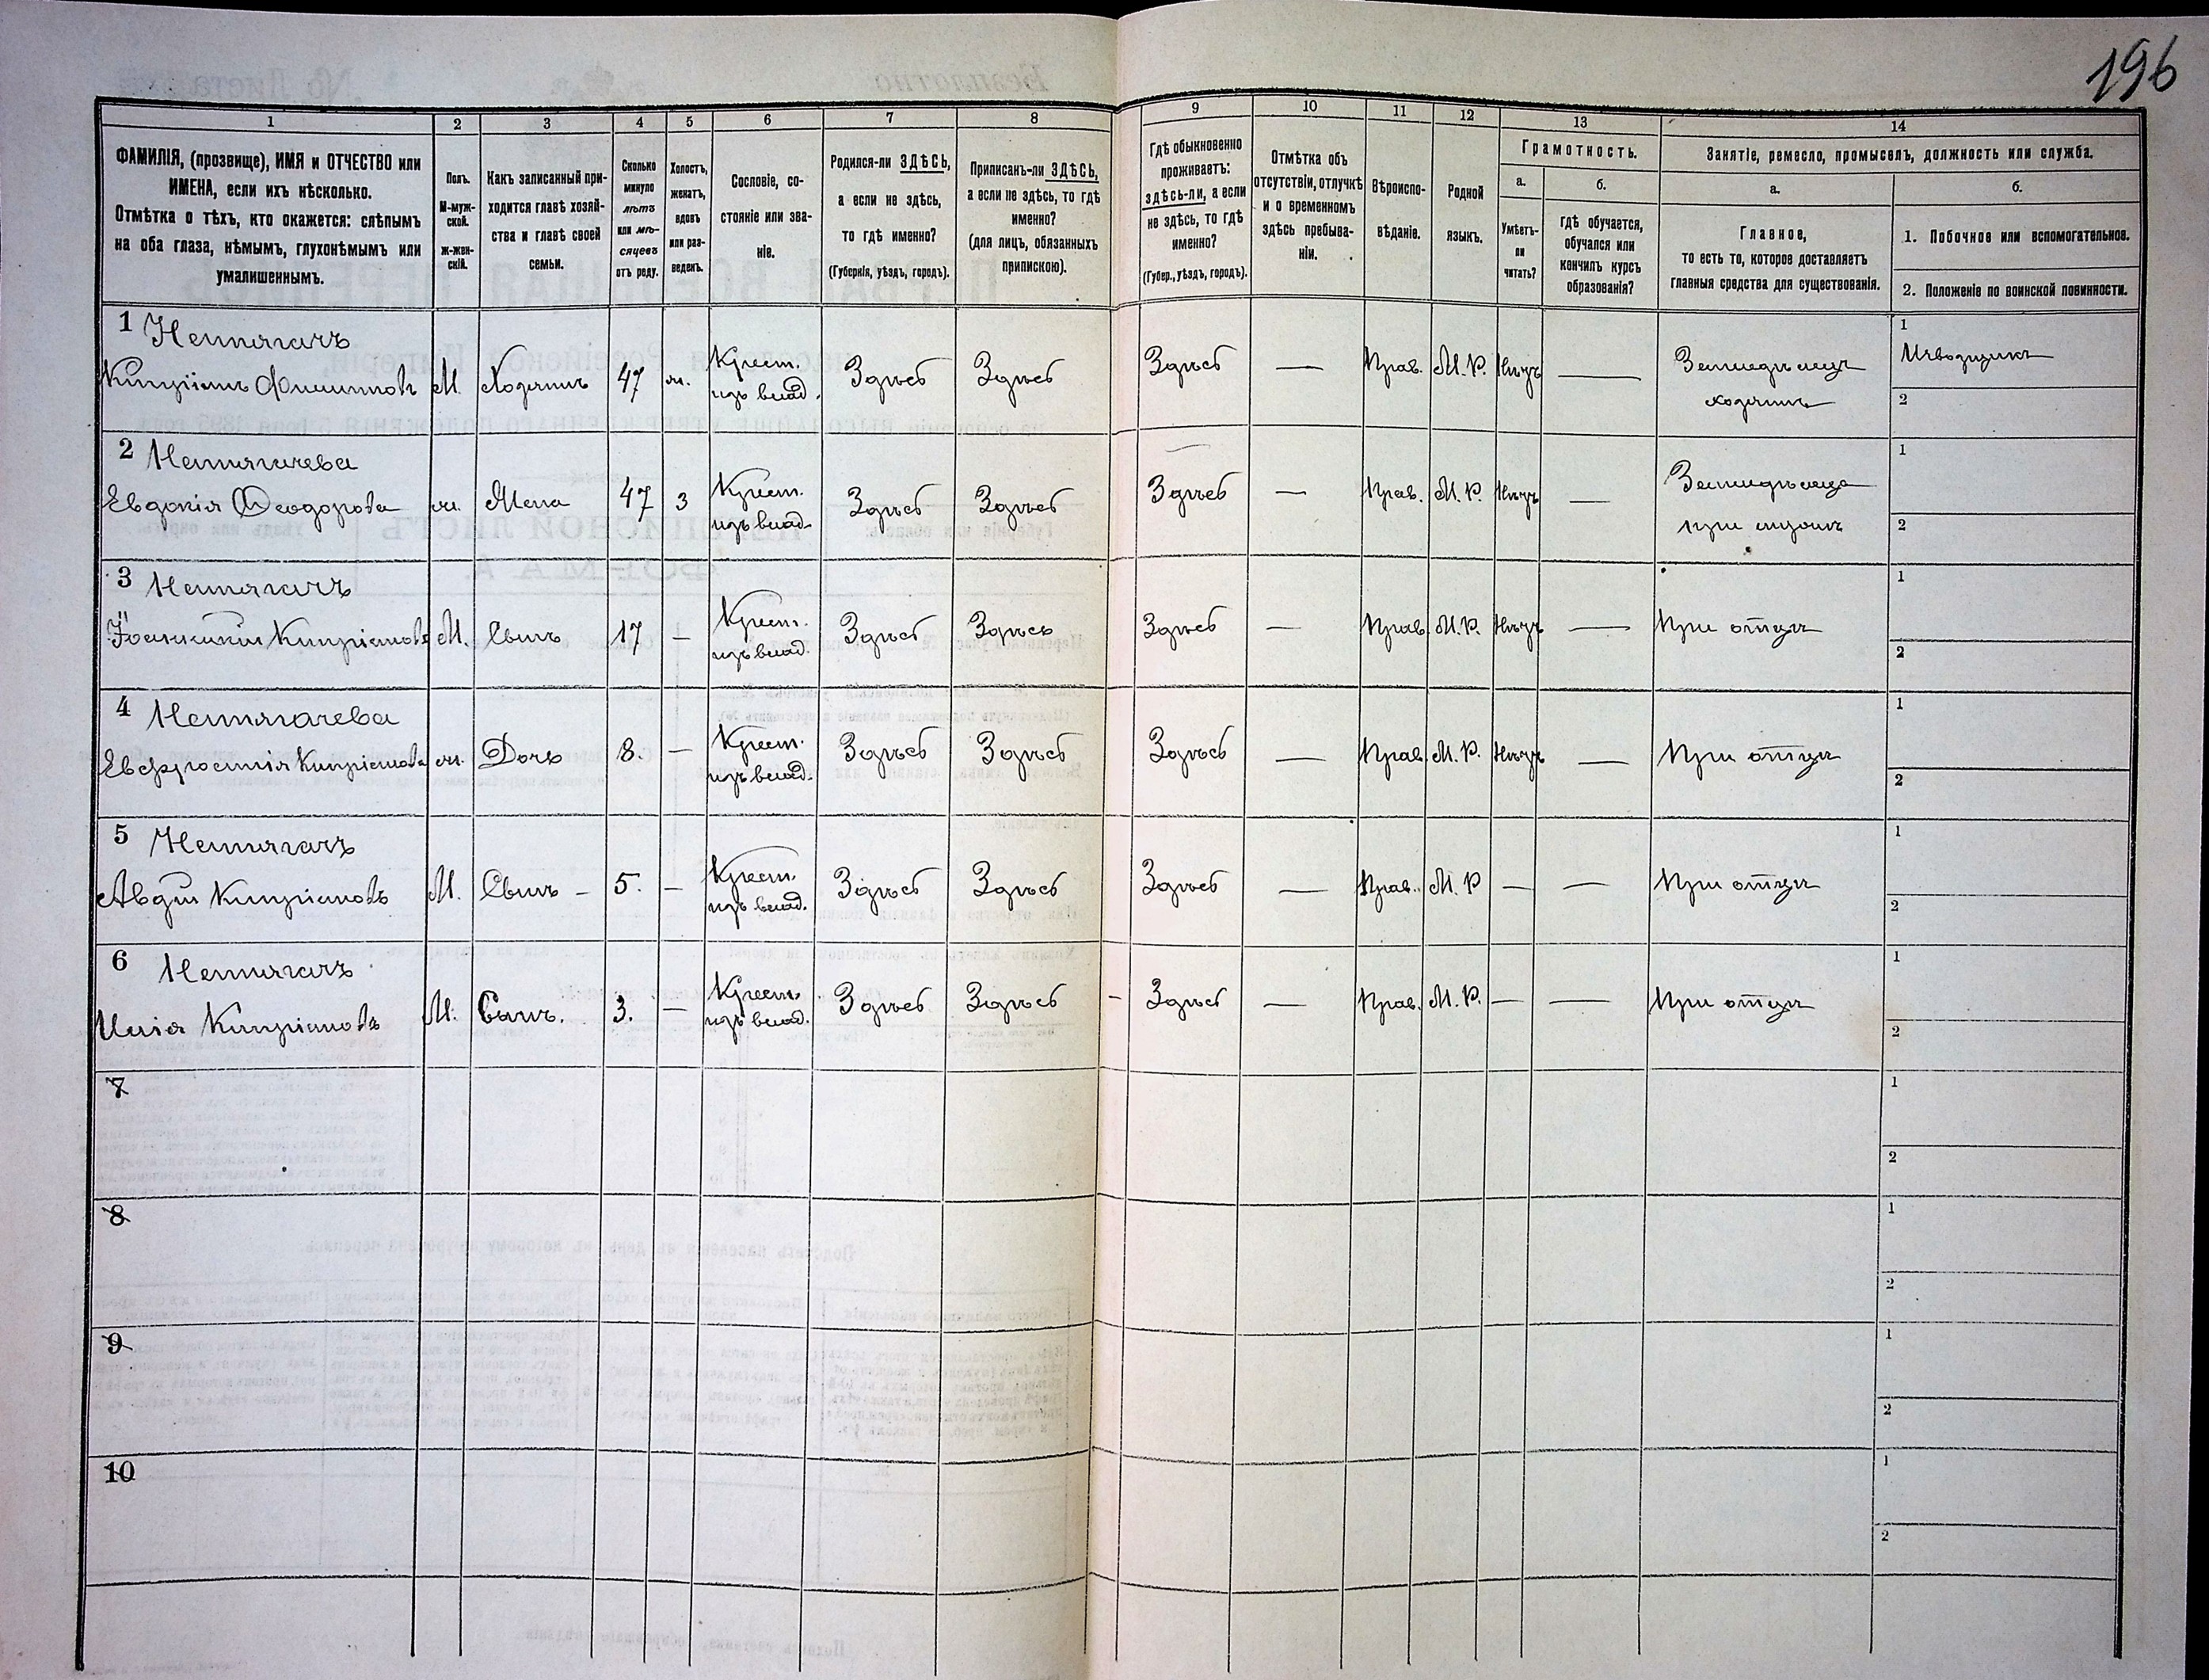 196
1
2
3
4
5
6
7
8
9
10
11
12
13
14
ФАМИЛІЯ, (прозвище), ИМЯ и ОТЧЕСТВО или
ИМЕНА, если ихъ нѣсколько.
Отмѣтка о тѣхъ, кто окажется: слѣпымъ
на оба глаза, нѣмымъ, глухонѣмымъ или
умалишеннымъ.
Полъ.
М-муж-
ской.
Ж-жен-
скій.
Какъ записанный при-
ходится главѣ хозяй-
ства и главѣ своей
семьи.
Сколько
минуло
лѣтъ
или мѣ-
сяцевъ
отъ роду.
Холостъ,
женатъ,
вдовъ
или раз-
веденъ.
Сословіе, со-
стояніе или зва-
ніе.
Родился-ли ЗДѢСЬ,
а если не здѣсь,
то гдѣ именно?
(Губернія, уѣздъ, городъ).
Приписанъ-ли ЗДѢСЬ,
а если не здѣсь, то гдѣ
именно?
(для лицъ, обязанныхъ
припискою).
Гдѣ обыкновенно
проживаетъ:
здѣсь-ли, а если
не здѣсь, то гдѣ
именно?
(Губер., уѣздъ, городъ).
Отмѣтка объ
отсутствіи, отлучкѣ
и о временномъ
здѣсь пребыва-
ніи.
Вѣроиспо-
вѣданіе.
Родной
языкъ.
Грамотность.
а.
б.
Умѣетъ-
ли
читать?
гдѣ обучается,
обучался или
кончилъ курсъ
образованія?
Занятіе, ремесло, промыселъ, должность или служба.
а.
б.
Главное,
то есть то, которое доставляетъ
главныя средства для существованія.
1. Побочное или вспомогательное.
2. Положеніе по воинской повинности.
1 Нетягачъ
Кипріянъ Филиповъ М. Хозяинъ 47 ж. Крест. изъ влад. Здѣсь Здѣсь Здѣсь — Прав. М. Р. Нѣтъ — Земледѣлецъ хозяинъ
1 Извозчикъ
2
2 Нетягачева
Евдокія Ѳеодорова ж. Жена 47 З Крест. изъ влад. Здѣсь Здѣсь Здѣсь — Прав. М. Р. Нѣтъ — Земледѣлица при мужѣ
1
2
3 Нетягачъ
Кипріановъ М. Сынъ 17 — Крест. изъ влад. Здѣсь Здѣсь Здѣсь — Прав. М. Р. Нѣтъ — При отцѣ
1
2
4 Нетягачева
Евфросинія Кипріанова ж. Дочь 8. — Крест. изъ влад. Здѣсь Здѣсь Здѣсь — Прав. М. Р. Нѣтъ — При отцѣ
1
2
5 Нетягачъ
Авдій Кипріановъ М. Сынъ — 5. — Крест. изъ влад. Здѣсь Здѣсь Здѣсь — Прав. М. Р — — При отцѣ
1
2
6 Нетягачъ
Илія Кипріановъ М. Сынъ. 3. — Крест. изъ влад. Здѣсь Здѣсь — Здѣсь — Прав. М. Р. — — При отцѣ
1
2
7
1
2
8
1
2
9
1
2
10
1
2